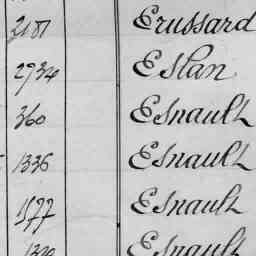 2181 Erussard
2734 Eslan
360 Esnault
1336 Esnault
1577 Esnault
Esnault